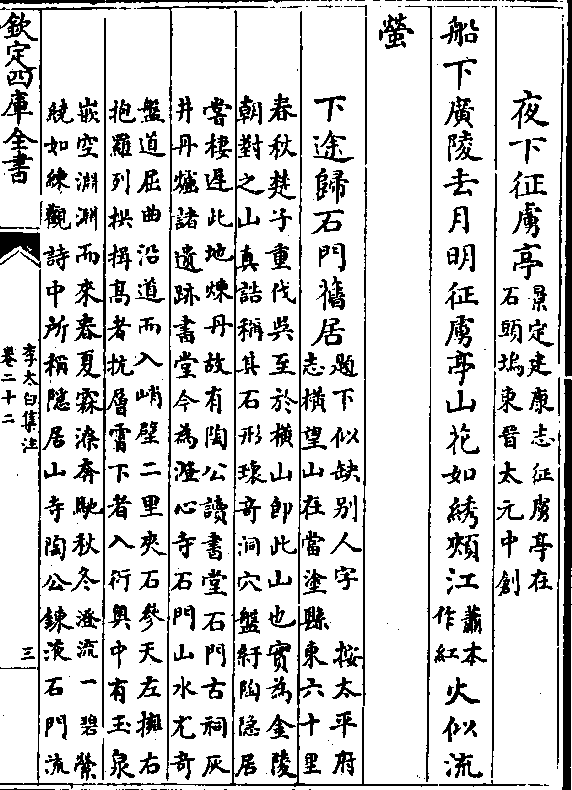 夜下征虜亭 景定建康志征虜亭在
石頭塢東晉太元中創
船下廣陵去月明征虜亭山花如綉頰江 蕭本
作紅 火似流
螢
下途歸石門舊居 題下似缺别人字 按太平府
志橫望山在當塗縣東六十里
春秋楚子重伐吳至於橫山即此山也實為金陵
朝對之山真誥稱其石形瓌奇洞穴盤紆陶隱居
嘗棲遲此地煉丹故有陶公讀書堂石門古祠灰
井丹爐諸遺跡書堂今為澄心寺石門山水尤奇
盤道屈曲沿道而入峭壁二里夾石參天左擁右
抱羅列拱揖高者抗層霄下者入衍奥中有玉泉
嵌空淵淵而來春夏霖潦奔馳秋冬澄流一碧縈
繞如練觀詩中所稱隱居山寺陶公鍊液石門流
欽定四庫全書
李太白集注
卷二十二
三